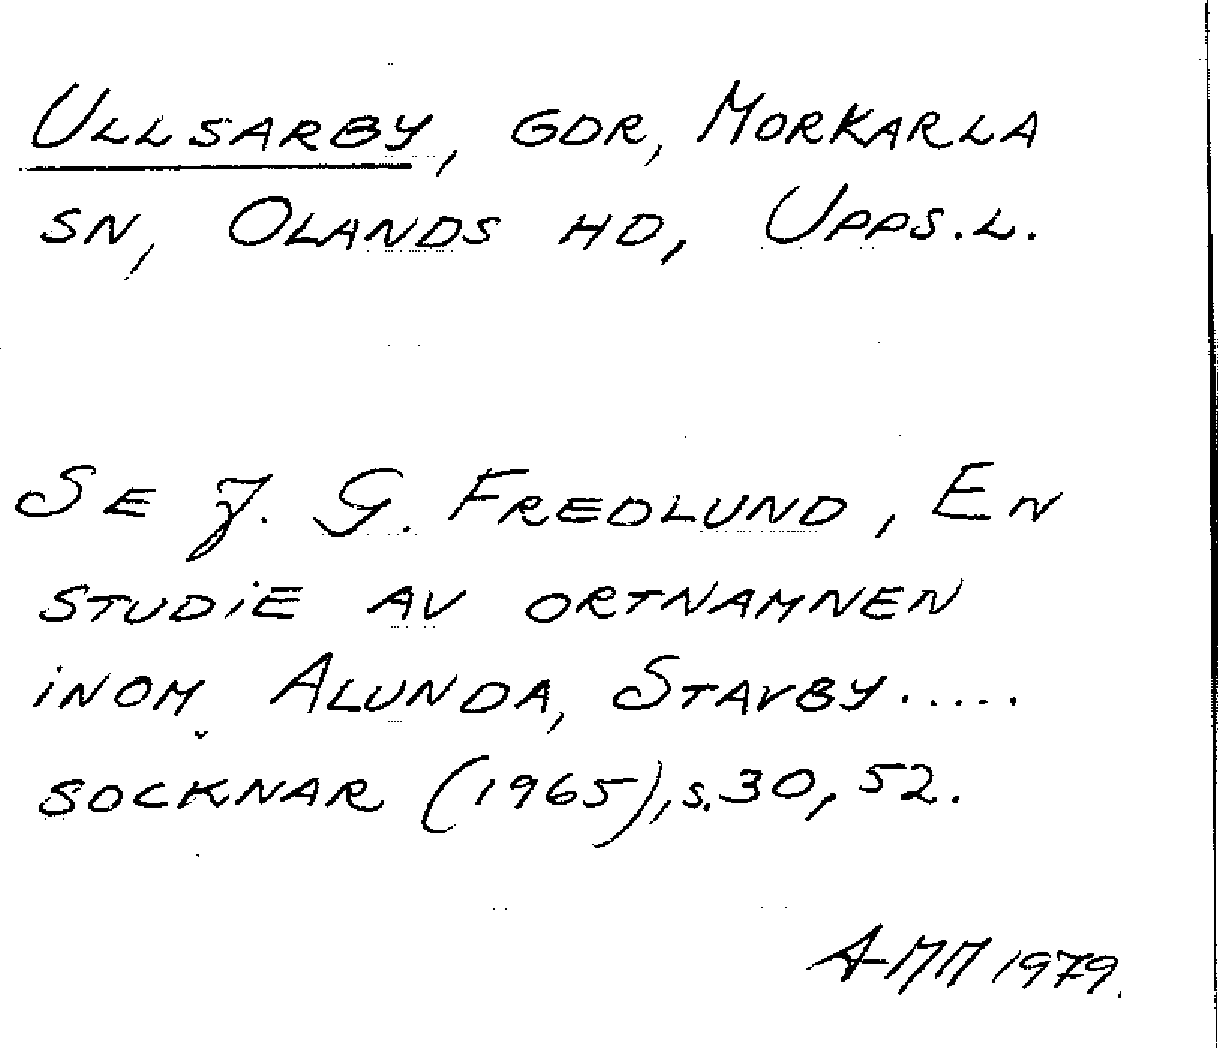 ULLSARBY, GDR, MORKARLA
SN, OLANDS HD, UPPS.L.
SE J. G. FREDLUND, EN
STUDIE AV ORTNAMNEN
INOM ALUNDA, STAVBY.....
SOCKNAR (1965), s. 30, 52.
A-MM 1979.